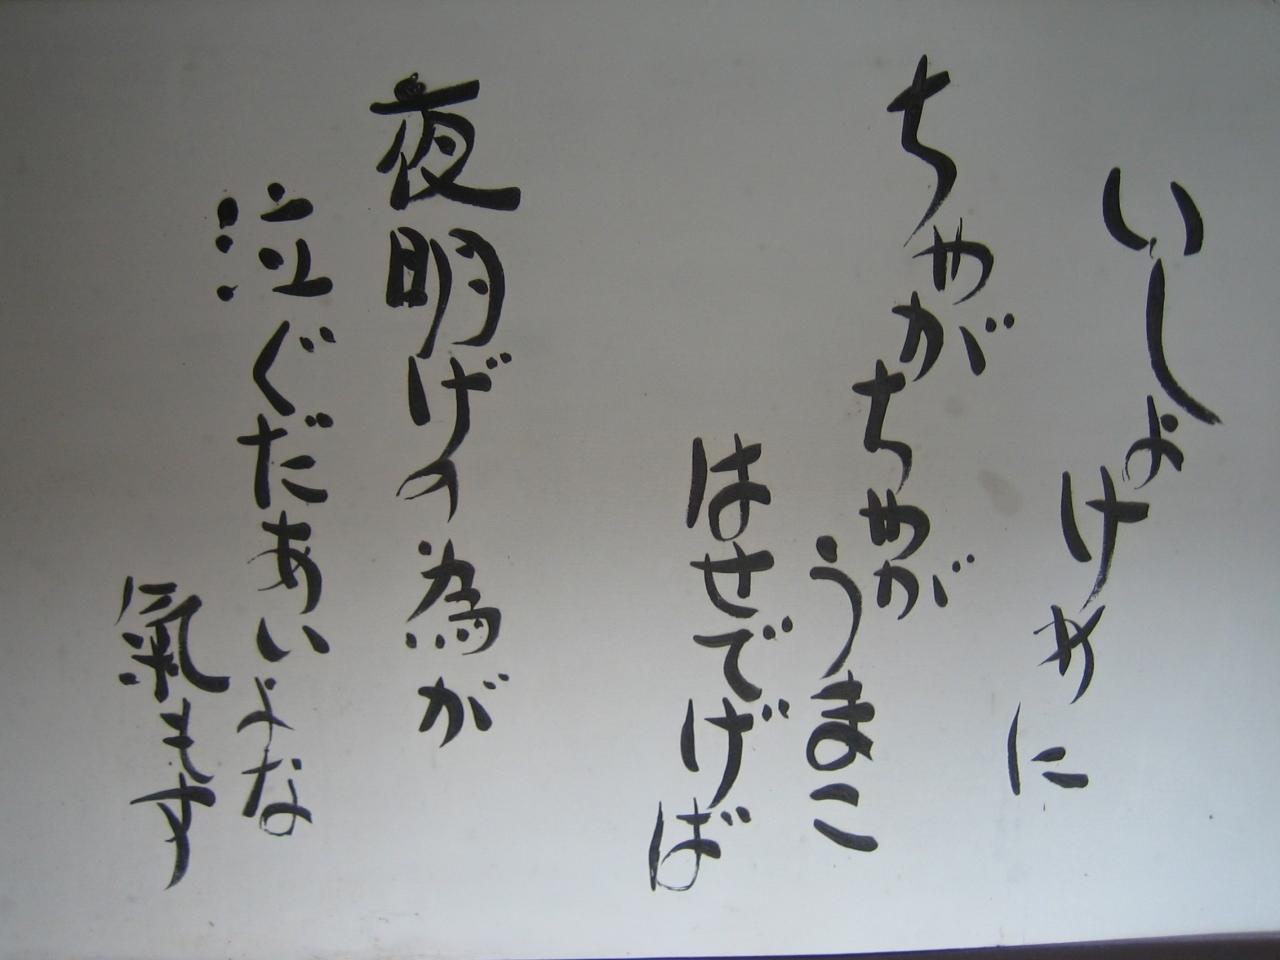 いしょけめに
ちゃがちゃが
うまこ
はせでげば
夜明げの為が
泣ぐだあいよな
氣もす